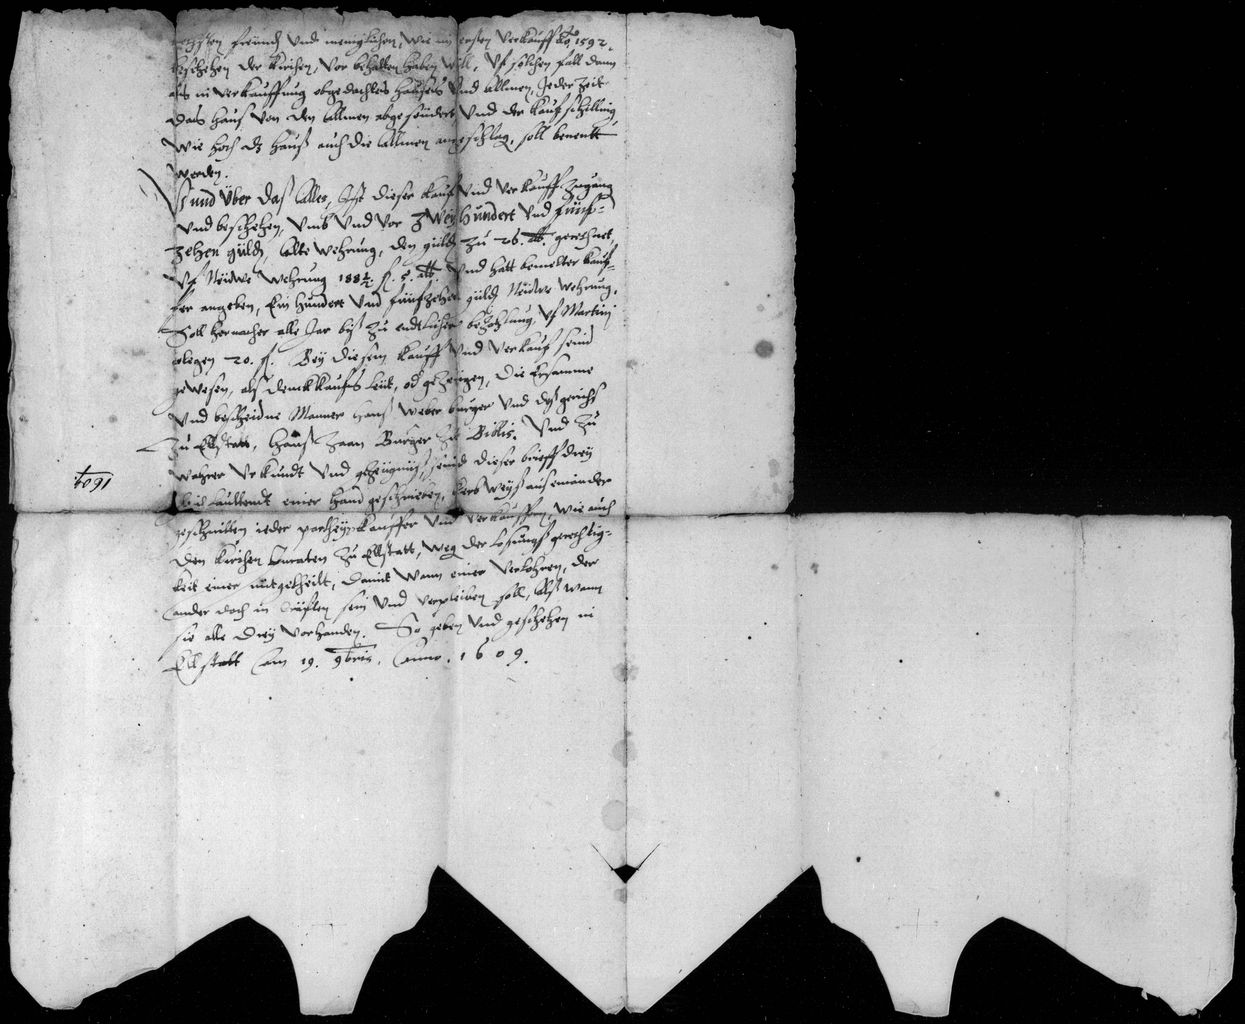 freündt und meniglichen, wie im ersten verkauff Ao 1592.
beschehen der Kirchen, vor behalten haben will, Uf solchen fall dann
als in verkauffung obgedachtes Hauses und Allmen, Jeder Zeit
das Hauß von den Allmen abgesöndert, und der Kaufschilling
wie hoch dz Hauß auch die Allmen angeschlag, soll benentt
werden.
und über daß Alles, Ist dieser Kauf und verkauff Zugang
und beschehen, umb und vor Zweyhundert und fünf-
zehen güld, Alte wehrung, den güld zu 26. alb gerechnet,
Uf Neüwe wehrung 188¼ fl. 5. alb und hatt bemelter Kauf-
fer angeben, Ein hundert und fünfzehen güld Neüwer wehrung,
Soll hernacher alle Jar biß zu endtlicher bezahlung, Uf Martiny
erlegen 20. fl. Bey diesem Kauff und verkauf seind
gewesen, alß Leut, od gezeugen, die Ersamme
und bescheidne Manner Hanß Weber burger und deß gerichts
zu Ellstatt, Hanß Zaan Burger zu Biblis. Und zu
wahrer Urkundt und gezeügnüß, seind dieser brieff drey
gleich lauttendt einer Hand geschrieben, Kerb weyß auseinander
geschnitten ieder parthey Kauffer und verkauffern, wie auch
den Kirchen Juraten zu Ellstatt, weg der Losungß gerechtig-
keit einer mitgetheilt, damit wann einer verlohren, der
ander doch in Crefften sein und verpleiben soll, Alß wann
sie alle drey vorhanden. So geben und geschehen in
Ellstatt Am 19. 9bris. Anno. 1609.
1609